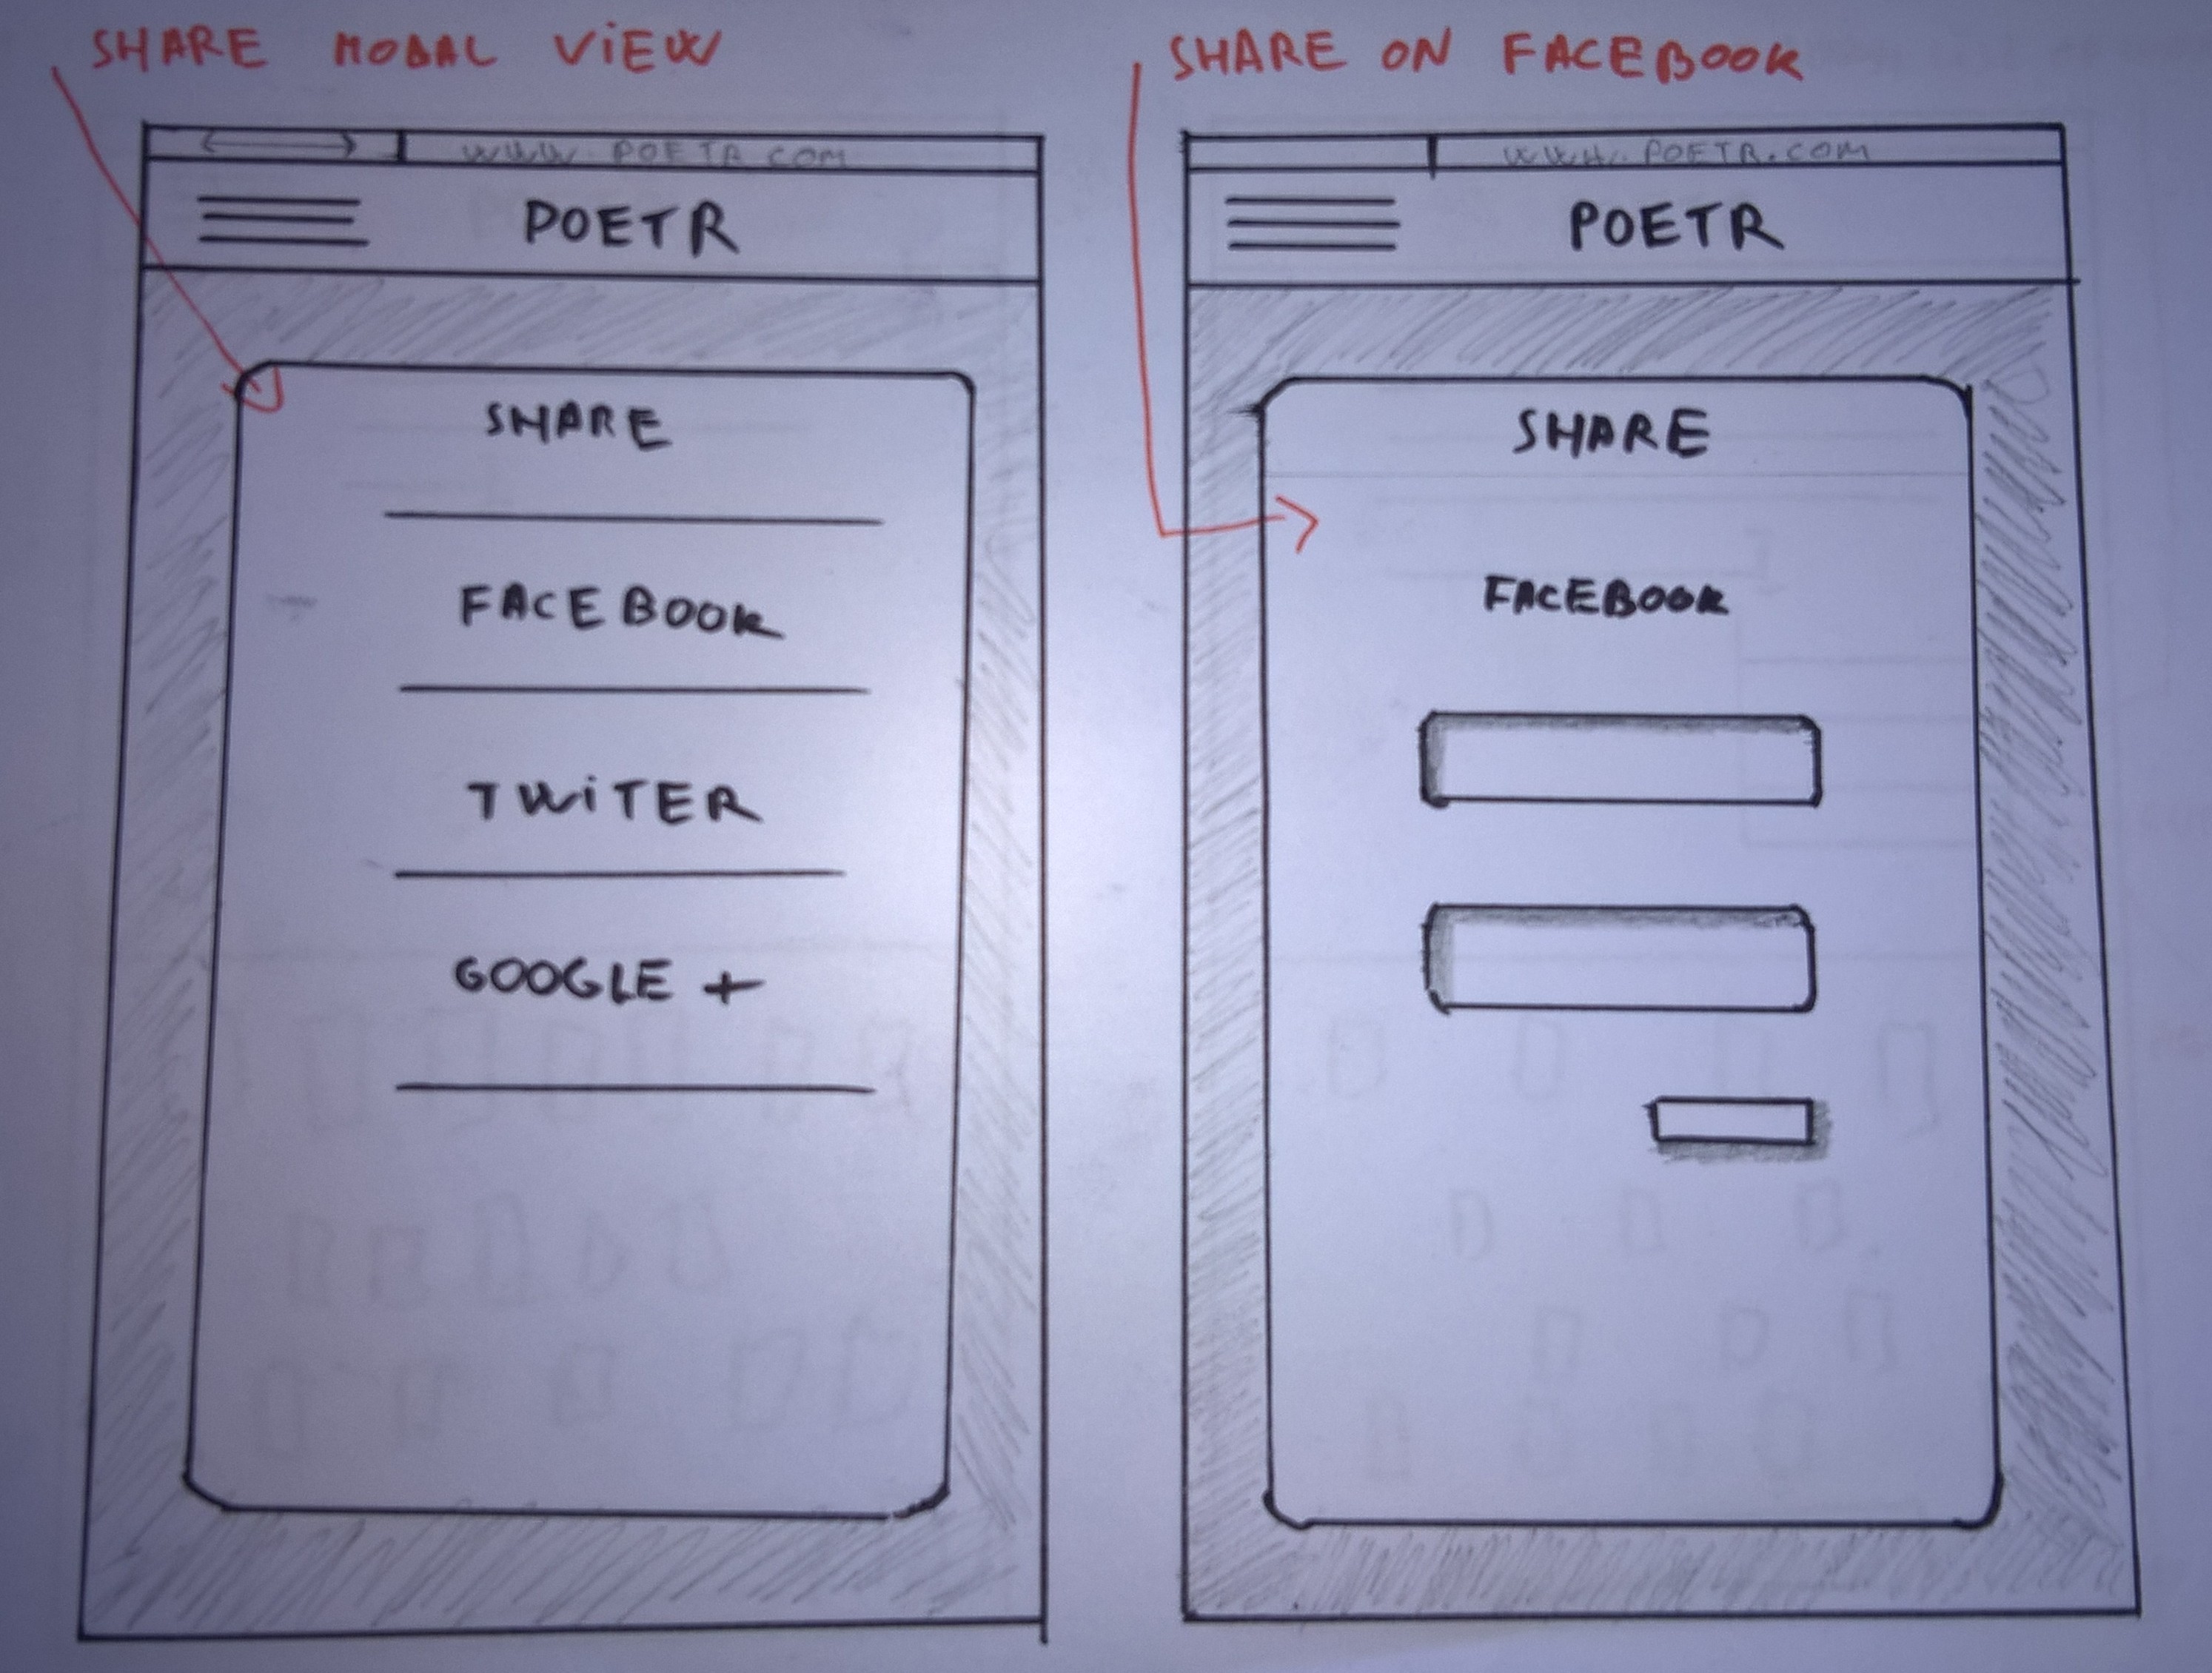 SHARE MODAL VIEW
WWW.POETR.COM
POETR
SHARE
FACEBOOK
TWITER
GOOGLE +
SHARE ON FACEBOOK
WWW.POETR.COM
POETR
SHARE
FACEBOOK